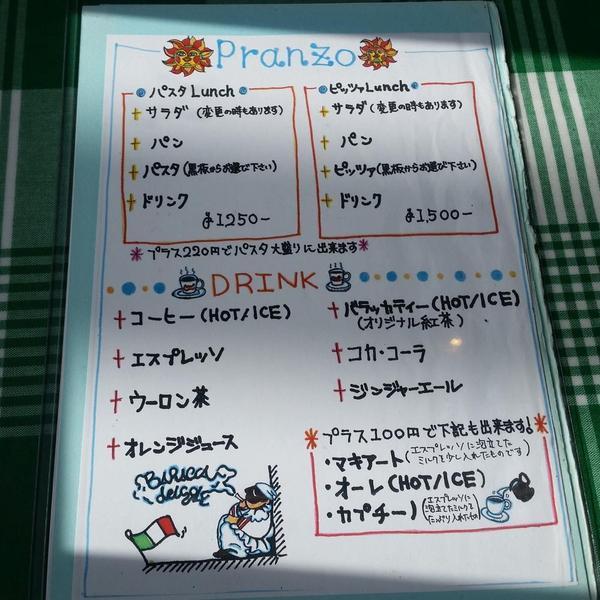 Pranzo
パスタ Lunch
サラダ (変更の時もあります)
パン
パスタ (黒板からお選び下さい)
ドリンク
¥1,250-
ピッツァ Lunch
サラダ (変更の時もあります)
パン
ピッツァ (黒板からお選び下さい)
ドリンク
¥1,500-
*プラス220円でパスタ大盛りに出来ます*
DRINK
コーヒー (HOT/ICE)
エスプレッソ
ウーロン茶
オレンジジュース
バラッカティー (HOT/ICE)
(オリジナル紅茶)
コカ・コーラ
ジンジャーエール
*プラス100円で下記も出来ます!*
・マキアート (エスプレッソに泡立てた
ミルクを少し入れたものです)
・オーレ (HOT/ICE)
・カプチーノ (エスプレッソに
泡立てたミルクを
たっぷり入れたもの)